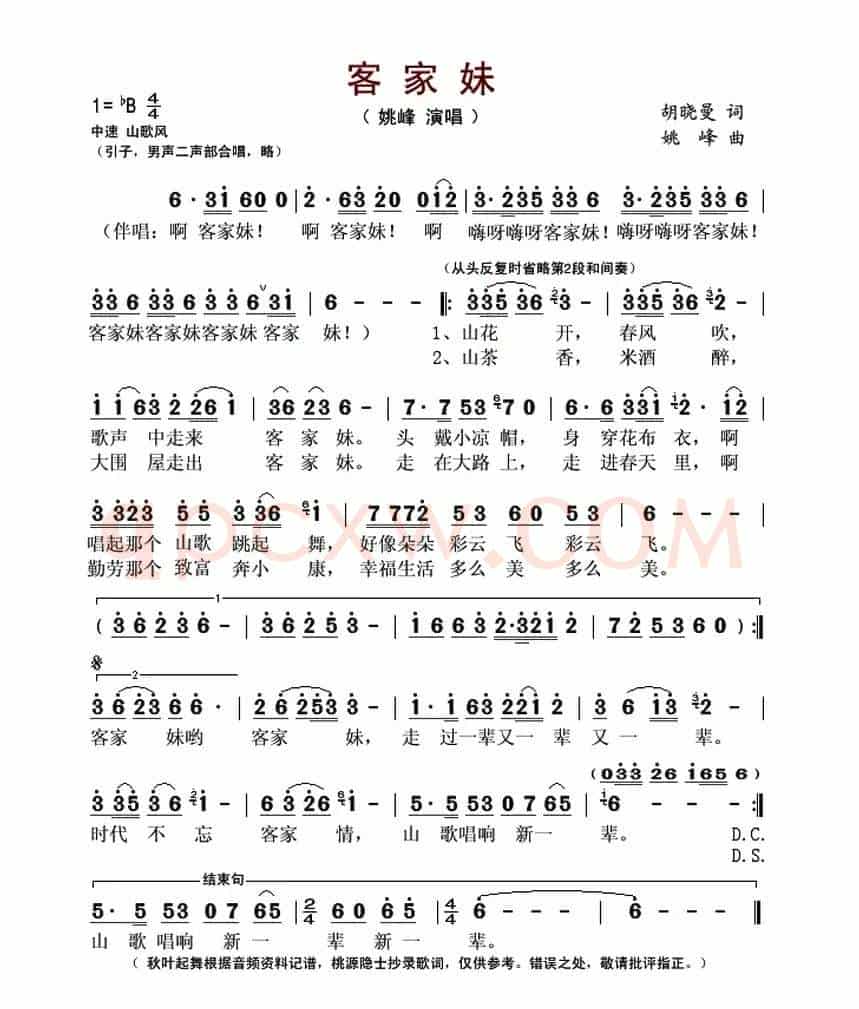 客家妹
1=♭B 4/4
（姚峰 演唱）
胡晓曼 词
中速 山歌风
姚 峰 曲
（引子，男声二声部合唱，略）
6·3i 600|2·63 20 0i2|3·235 33 6 3·235 33 6|
（伴唱：啊 客家妹！ 啊 客家妹！啊 嗨呀嗨呀客家妹！嗨呀嗨呀客家妹！
（从头反复时省略第2段和间奏）
33 6 33 6 3 3 6 3i|6 - - -‖:335 36 2 3 -|335 36 3 2 -|
客家妹客家妹客家妹 客家 妹！） 1、山花 开， 春风 吹，
2、山茶 香，米酒 醉，
i i63 2 26 i|36 23 6 -|7·7 53 6 7 0|6·6 33i i 2· i2|
歌声 中走来 客 家 妹。 头 戴小凉 帽，身 穿花布 衣，啊
大围 屋走出 客 家 妹。 走 在大路 上，走 进春天 里，啊
3 323 5 5 3 36 6 i|7 772 53 60 53|6 - - -|
唱起那个 山歌 跳起 舞，好像朵朵 彩云 飞 彩云 飞。
qpcxw.COM
勤劳那个 致富 奔小 康，幸福生活 多么 美 多么 美。
1
（36 23 6 -|36 25 3 -|i6 63 2·32i 2|72 53 60）:‖
2
3 6 23 6 6·|2 6 253 3 -|i·i 63 22i 2|3 6 i3 3 2 -|
客家 妹哟 客家 妹，走 过一辈又一 辈 又 一 辈。
（033 26 i65 6）
3 35 3 6 2 i -|6 3 26 6 i -|5·5 53 07 65|i 6 - -‖
时代 不 忘 客家 情， 山 歌唱响 新一 辈。 D.C.
D.S.
结束句
5·5 53 07 65|2/4 60 6 5|4/4 6 - - -|6 - - -‖
山 歌 唱响 新一 辈 新一 辈。
（ 秋叶起舞根据音频资料记谱，桃源隐士抄录歌词，仅供参考。错误之处，敬请批评指正。）